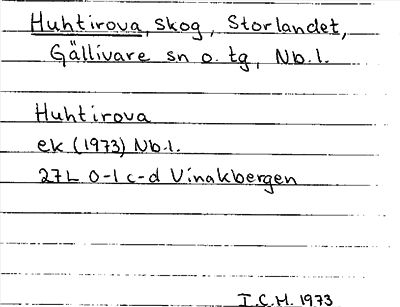 Huhtirova, skog, Storlandet,
Gällivare sn o. tg, Nb.l.
Huhtirova
ek (1973) Nb.l.
27L 0-1 c-d Vinakbergen
I.C.H. 1973